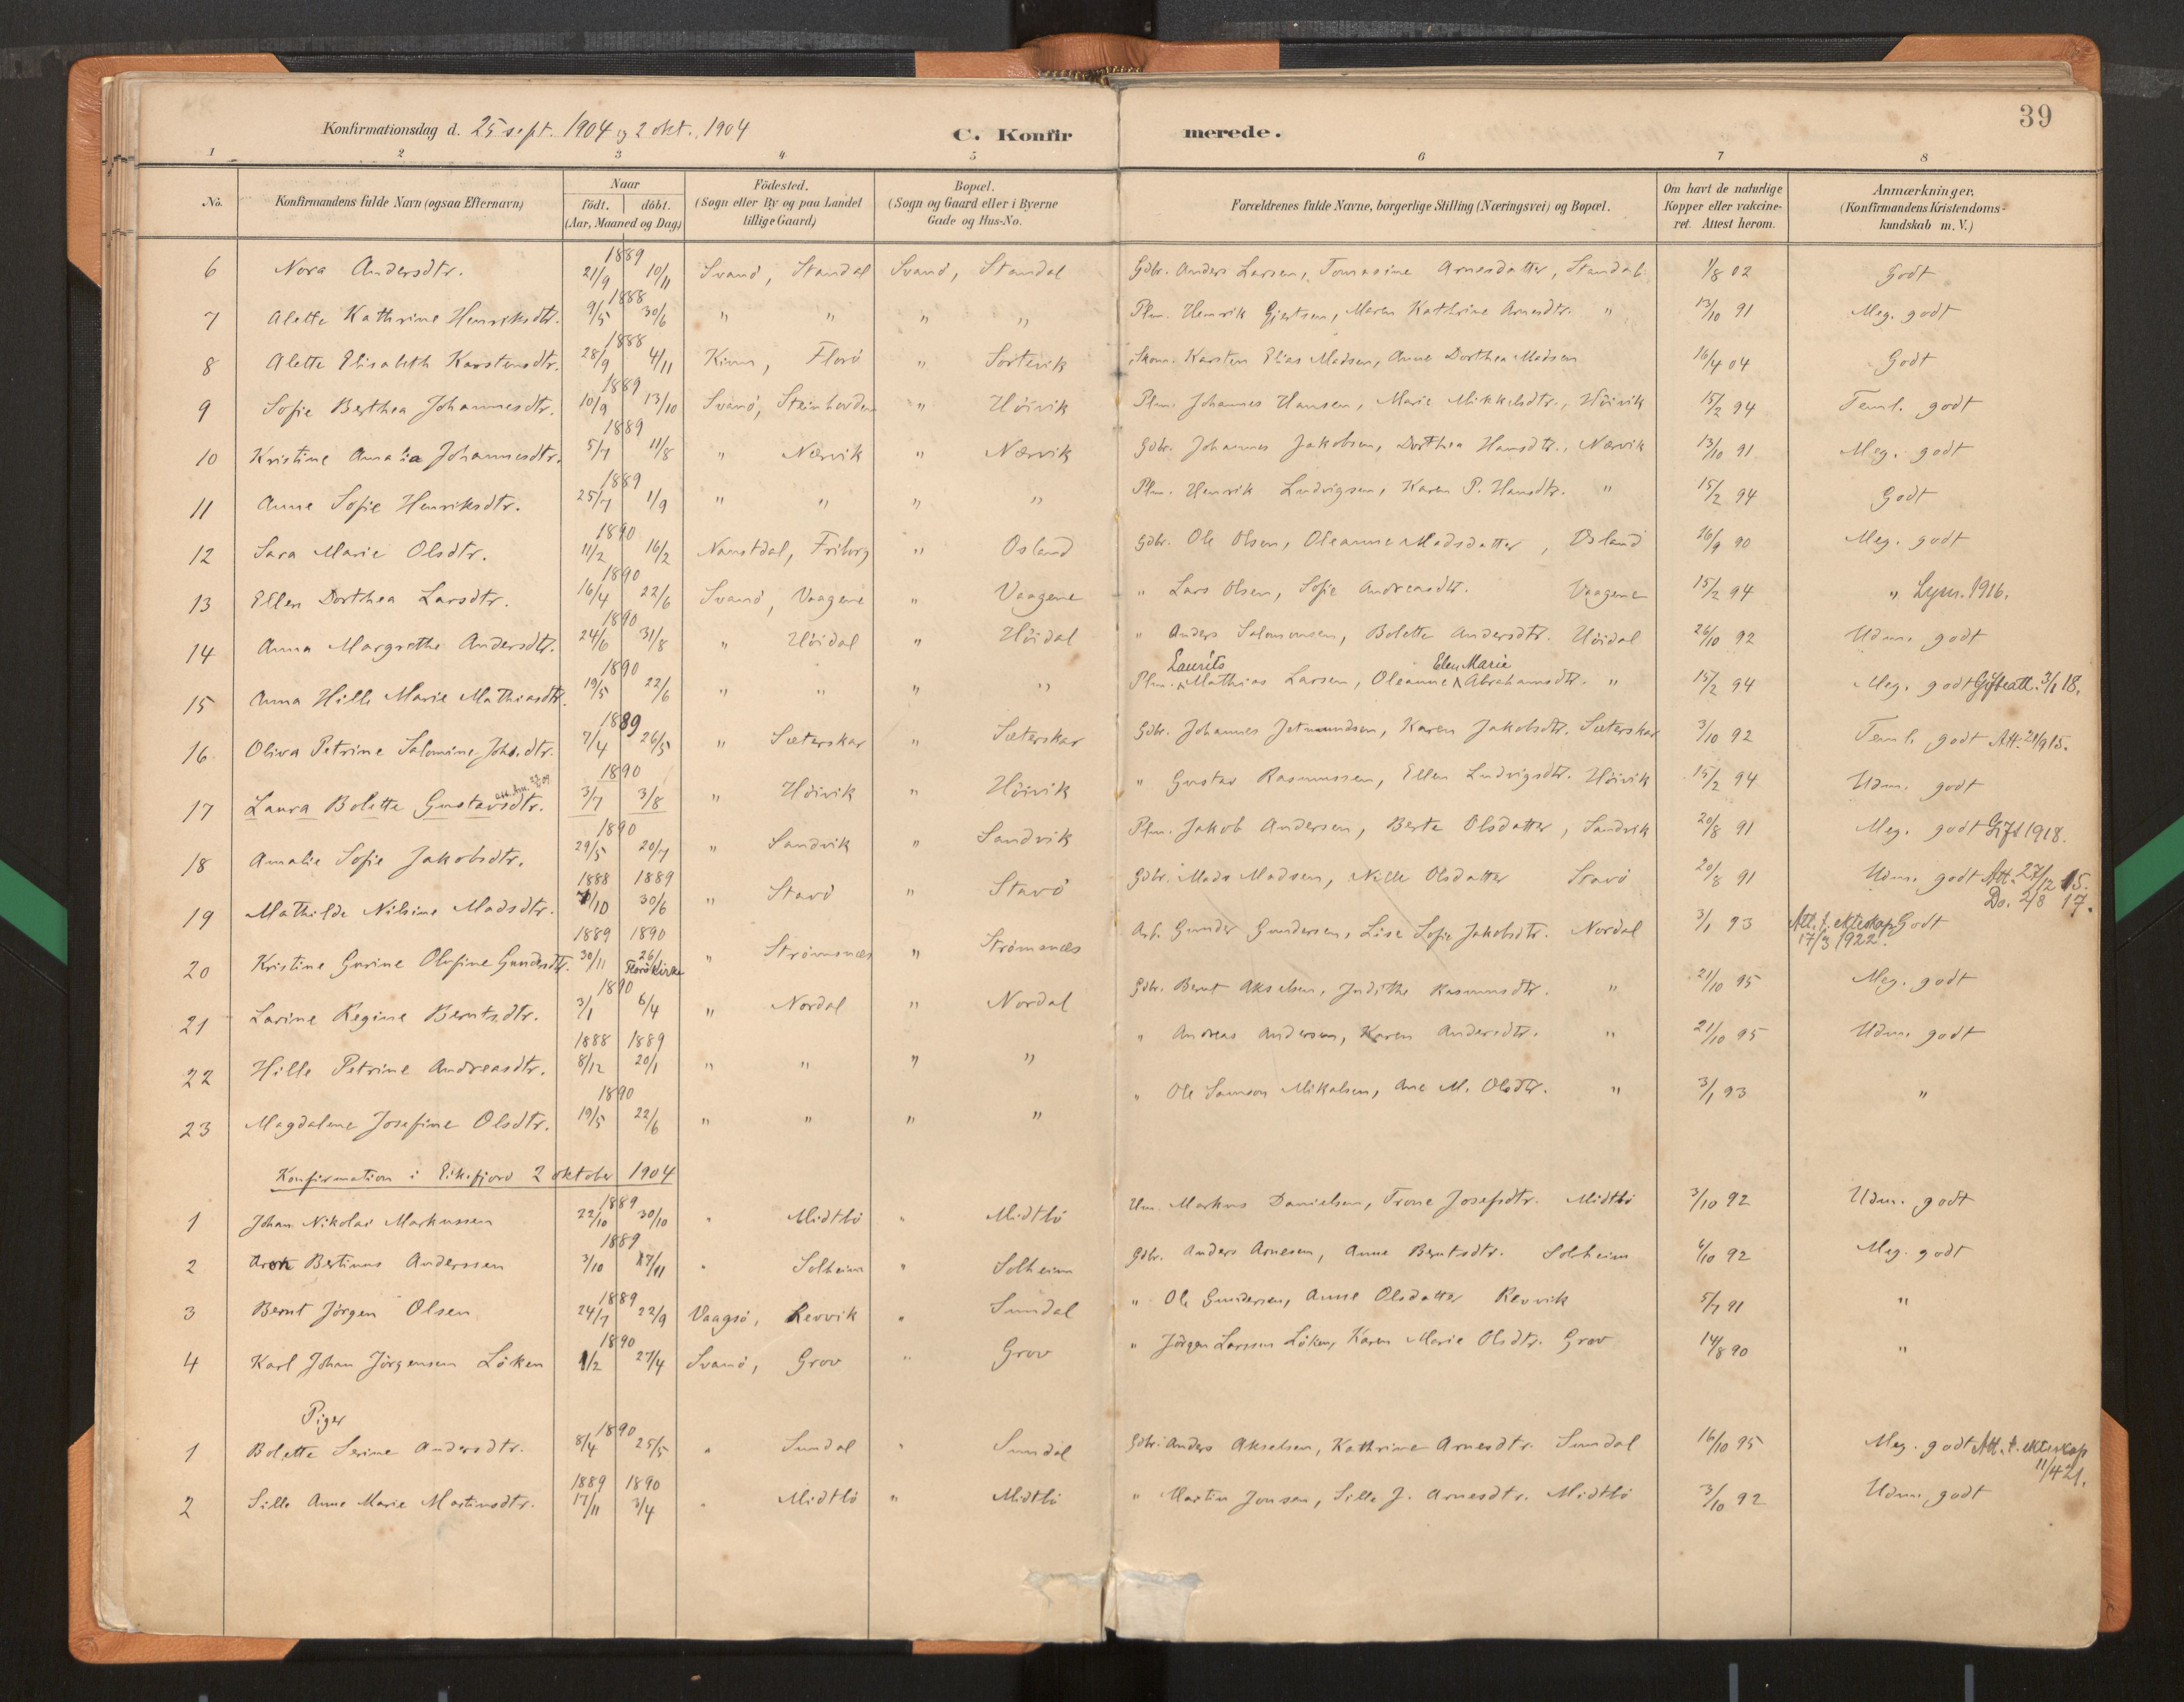 39
Konfirmationsdag d. 25 sept. 1904 og 2 okt. 1904 C. Konfir merede.
1 2 3 4 5 6 7 8
No. Konfirmandens fulde Navn (ogsaa Efternavn) Naar födt. döbt. (Aar, Maaned og Dag) Födested. (Sogn eller By og paa Landet tillige Gaard) Bopæl. (Sogn og Gaard eller i Byerne Gade og Hus-No. Forældrenes fulde Navne, borgerlige Stilling (Næringsvei) og Bopæl. Om havt de naturlige Kopper eller vakcineret. Attest herom. Anmærkninger. (Konfirmandens Kristendomskundskab m. V.)
6 Nora Andersdtr. 1889 21/9 10/11 Svanö, Standal Svanö, Standal Gdbr. Anders Larsen, Tomasine Arnesdatter, Standal 1/8 02 Godt
7 Alette Kathrine Henriksdtr. 1888 9/5 30/6 " " " " Plm. Henrik Gjertsen, Maren Kathrine Arnesdtr. " 13/10 91 Meg. godt
8 Alette Elisabeth Karstensdtr. 1888 28/9 4/11 Kinn, Florö " Sortevik Skom. Karsten Elias Madsen, Anne Dorthea Madsen 16/4 04 Godt
9 Sofie Berthea Johannesdtr. 1889 10/9 13/10 Svanö, Steinhovden " Höivik Plm. Johannes Hansen, Marie Mikkelsdtr., Höivik 15/2 94 Teml. godt
10 Kristine Amalia Johannesdtr. 1889 5/7 11/8 " Nærvik " Nærvik Gdbr. Johannes Jakobsen, Dorthea Hansdtr., Nærvik 13/10 91 Meg. godt
11 Anne Sofie Henriksdtr. 1889 25/7 1/9 " " " " Plm. Henrik Ludvigsen, Karen P. Hansdtr. " 15/2 94 Godt
12 Sara Marie Olsdtr. 1890 11/2 16/2 Naustdal, Friborg " Osland Gdbr. Ole Olsen, Oleanne Madsdatter, Osland 26/9 90 Meg. godt
13 Ellen Dorthea Larsdtr. 1890 16/4 22/6 Svanö, Vaagene " Vaagene " Lars Olsen, Sofie Andreasdtr. Vaagene 15/2 94 " Lysn. 1916.
14 Anna Margrethe Andersdtr. 1890 24/6 31/8 " Höidal " Höidal " Anders Salomonsen, Bolette Andersdtr. Höidal 26/10 92 Udm. godt
Laurits Elen Marie
15 Anna Hille Marie Mathiasdtr. 1890 19/5 22/6 " " " " Plm. Mathias Larsen, Oleanne Abrahamsdtr. " 15/2 94 Meg. godt Gifteatt. 3/1 18.
16 Oliva Petrine Salomine Johs.dtr. 1889 7/4 26/5 " Sæterskar " Sæterskar Gdbr. Johannes Jetmundsen, Karen Jakobsdtr. Sæterskar 3/10 92 Teml. godt Att. 21/9 15.
17 Laura Bolette Gustavsdtr. 1890 3/7 3/8 " Höivik " Höivik " Gustav Rasmussen, Ellen Ludvigsdtr. Höivik 15/2 94 Udm. godt
18 Amalie Sofie Jakobsdtr. 1890 29/5 20/7 " Sandvik " Sandvik Plm. Jakob Andersen, Berte Olsdatter, Sandvik 20/8 91 Meg. godt Gift 1918.
19 Mathilde Nilsine Madsdtr. 1888 1889 /10 30/6 " Stavö " Stavö Gdbr. Mads Madsen, Nille Olsdatter Stavö 20/8 91 Udm. godt Att. 27/12 15.
Do. 2/8 17.
20 Kristine Gurine Olufine Gundersdtr. 1889 1890 30/11 26/1 Florö Kirke " Strömsnæs " Strömsnæs Arb. Gunder Gundersen, Lise Sofie Jakobsdtr. Nordal 3/1 93 Att. t. ekteskap 17/3 1922. Godt
21 Larine Regine Berntsdtr. 1890 3/1 6/4 " Nordal " Nordal Gdbr. Bernt Akselsen, Judithe Rasmusdtr. " 21/10 95 Meg. godt
22 Hille Petrine Andreasdtr. 1888 1889 8/12 20/1 " " " " " Andreas Andersen, Karen Andersdtr. " 21/10 95 Udm. godt
23 Magdalene Josefine Olsdtr. 1890 19/5 22/6 " " " " " Ole Samson Mikalsen, Ane M. Olsdtr. " 3/1 93 "
Konfirmation i Eikefjord 2 oktober 1904
1 Johan Nikolai Markussen 1889 22/10 30/10 " Midtbö " Midtbö Um. Markus Danielsen, Trone Josefsdtr. Midtbö 3/10 92 Udm. godt
2 Aron Bertinus Anderssen 1889 3/10 17/11 " Solheim " Solheim Gdbr. Anders Arnesen, Anne Berntsdtr. Solheim 6/10 92 Meg. godt
3 Bernt Jörgen Olsen 1889 24/7 22/9 Vaagsö, Revvik " Sundal " Ole Gundersen, Anne Olsdatter Revvik 5/7 91 "
4 Karl Johan Jörgensen Löken 1890 1/2 27/4 Svanö, Grov " Grov " Jörgen Larssen Löken, Karen Marie Olsdtr. Grov 14/8 90 "
Piger
1 Bolette Serine Andersdtr. 1890 8/4 25/5 " Sundal " Sundal Gdbr. Anders Akselsen, Kathrine Arnesdtr. Sundal 16/10 95 Meg. godt Att. t. ekteskap 11/4 21.
2 Sille Anne Marie Martinsdtr. 1889 1890 17/11 3/4 " Midtbö " Midtbö " Martin Jonsen, Sille J. Arnesdtr. Midtbö 3/10 92 Udm. godt